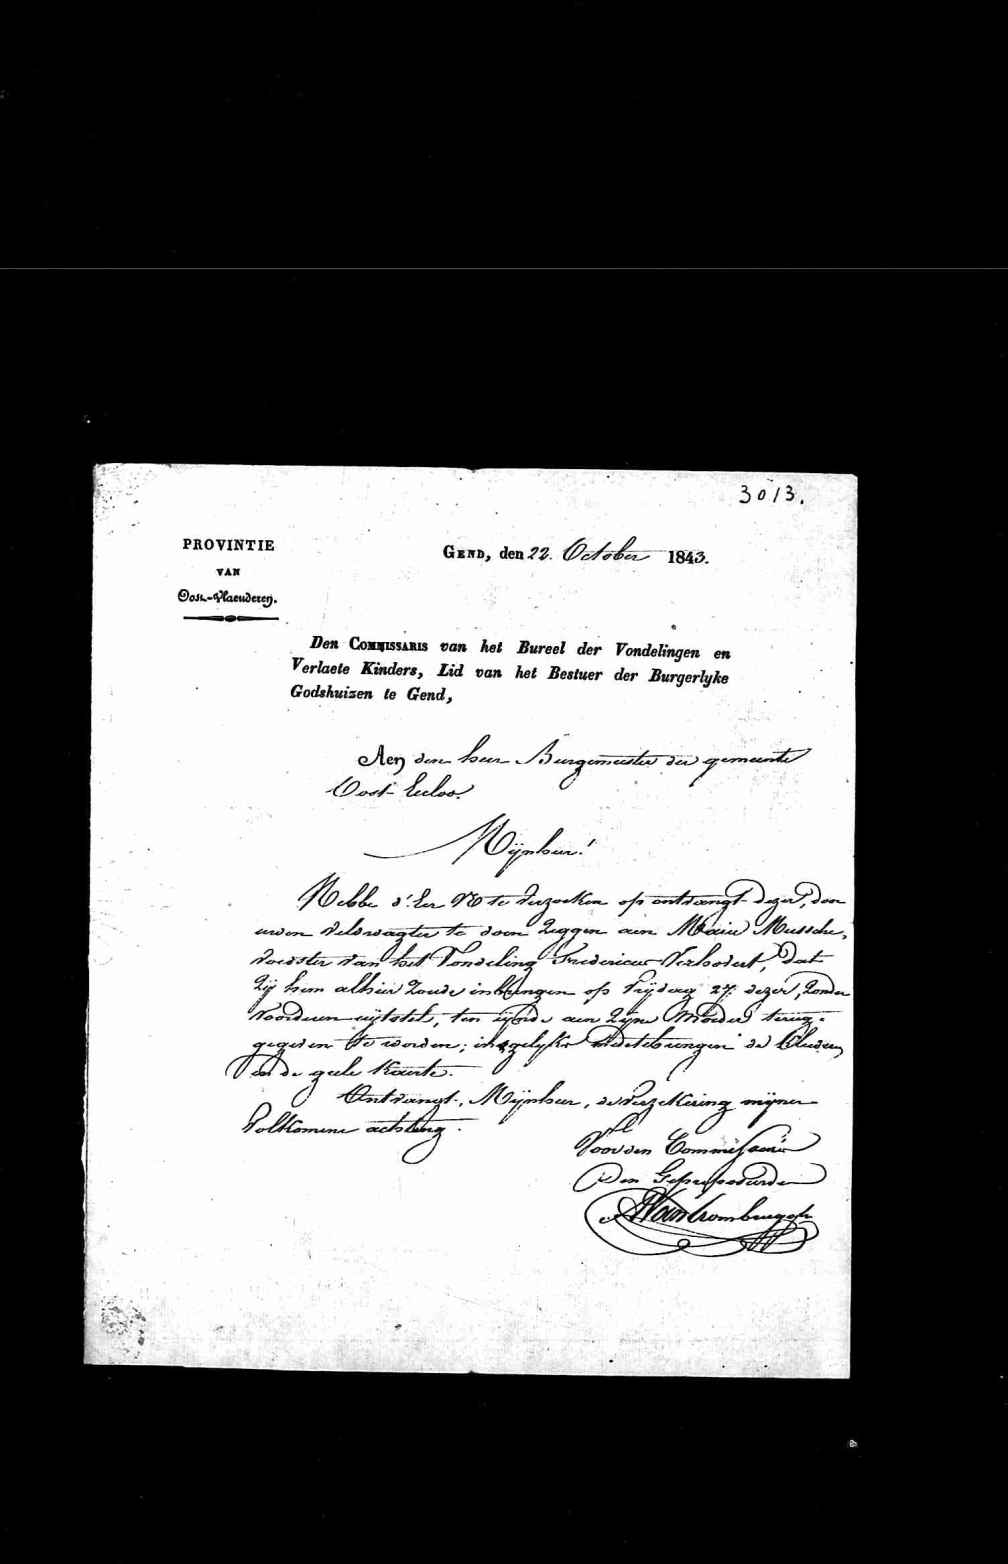 3013.
PROVINTIE
VAN
Oost-Vlaenderen.
GEND, den 22. October 1843.
Den COMMISSARIS van het Bureel der Vondelingen en
Verlaete Kinders, Lid van het Bestuer der Burgerlyke
Godshuizen te Gend,
Aen den heer Burgemeester der gemeente
Oost-Eecloo.
Mijnheer!
Hebbe d'Eer UE te verzoeken op ontvangt dezer, den
uwen veldwagter te doen zeggen aen Marie Mussche,
voedster van het Vondeling Fredericus Verlodert, dat
zij hem alhier zoude inbringen op Vrijdag 27. dezer, zonder
voorderen uijtstel, ten ijnde aen zijne Moeder terug-
gegeven te worden; insgelyks medebrengen de Kleederen
en de geele Kaerte.
Ontvangt, Mijnheer, de verzekering mijner
Volkomene achting.
Voor den Commissaris
Den Geproposeerden
Van Crombrugghe